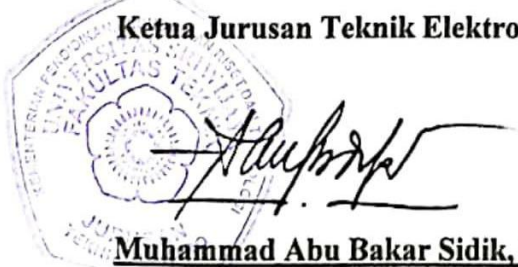 Ketua Jurusan Teknik Elektro
UNIVERSITAS SRIWIJAYA
FAKULTAS TEKNIK
JURUSAN
Muhammad Abu Bakar Sidik,